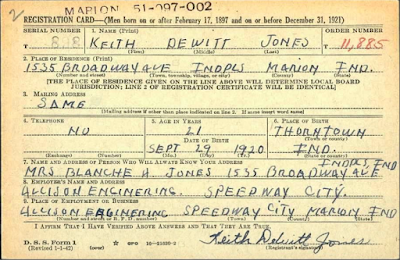 2
MARION 51-097-002
REGISTRATION CARD—(Men born on or after February 17, 1897 and on or before December 31, 1921)
SERIAL NUMBER 1. NAME (Print) ORDER NUMBER
KEITH DEWITT JONES 11,885
(First) (Middle) (Last)
2. PLACE OF RESIDENCE (Print)
1535 BROADWAY AVE INDPLS MARION IND.
(Number and street) (Town, township, village, or city) (County) (State)
[THE PLACE OF RESIDENCE GIVEN ON THE LINE ABOVE WILL DETERMINE LOCAL BOARD
JURISDICTION; LINE 2 OF REGISTRATION CERTIFICATE WILL BE IDENTICAL]
3. MAILING ADDRESS
SAME
[Mailing address if other than place indicated on line 2. If same insert word same]
4. TELEPHONE 5. AGE IN YEARS 6. PLACE OF BIRTH
NO 21 THORNTOWN
DATE OF BIRTH (Town or county)
SEPT 29 1920 IND.
(Exchange) (Number) (Mo.) (Day) (Yr.) (State or country)
7. NAME AND ADDRESS OF PERSON WHO WILL ALWAYS KNOW YOUR ADDRESS INDPLS, IND
MRS BLANCHE H. JONES 1535 BROADWAY AVE
8. EMPLOYER'S NAME AND ADDRESS
ALLISON ENGINERING. SPEEDWAY CITY.
9. PLACE OF EMPLOYMENT OR BUSINESS
ALLISON ENGINERING SPEEDWAY CITY MARION IND
(Number and street or R. F. D. number) (Town) (County) (State)
I AFFIRM THAT I HAVE VERIFIED ABOVE ANSWERS AND THAT THEY ARE TRUE.
D. S. S. Form 1
(Revised 1-1-42) (over)
Keith Dewitt Jones